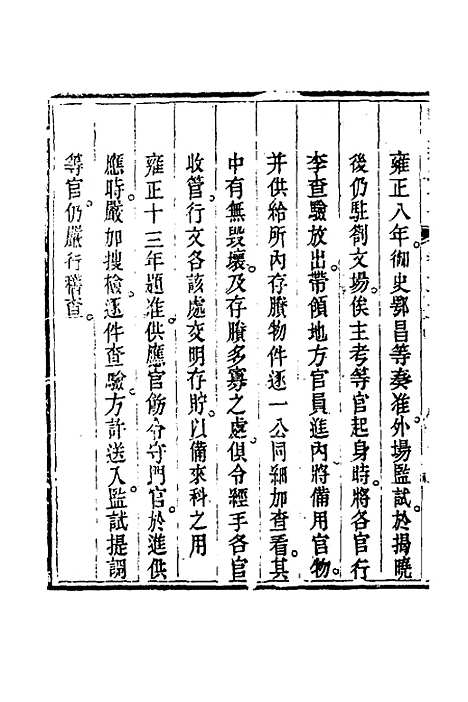 雍正八年御史鄂昌等奏准外場監試於揭曉
後仍駐劄文場俟主考等官起身時將各官行
李查驗放出帶領地方官員進内將備用官物
并供給所内存賸物件逐一公同細加查看其
中有無毀壞及存賸多寡之處俱令經手各官
收管行文各該處交明存貯以備來科之用
雍正十三年題准供應官飭令守門官於進供
應時嚴加搜檢逐件查驗方許送入監試提調
等官仍嚴行稽查